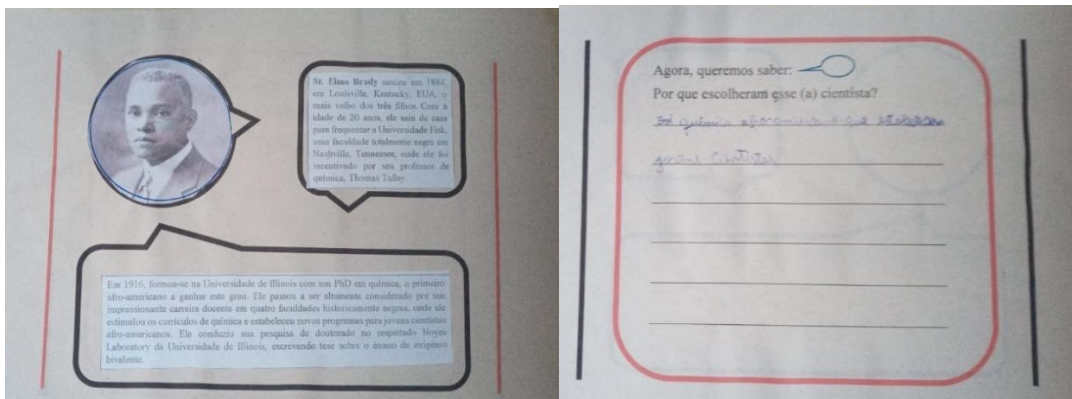 St. Elmo Brady nasceu em 1884,
em Louisville, Kentucky, EUA, o
mais velho dos três filhos. Com a
idade de 20 anos, ele saiu de casa
para frequentar a Universidade Fisk,
uma faculdade totalmente negra em
Nashville, Tennessee, onde ele foi
incentivado por seu professor de
química, Thomas Talley.
Em 1916, formou-se na Universidade de Illinois com um PhD em química, o primeiro
afro-americano a ganhar este grau. Ele passou a ser altamente considerado por sua
impressionante carreira docente em quatro faculdades historicamente negras, onde ele
estimulou os currículos de química e estabeleceu novos programas para jovens cientistas
afro-americanos. Ele conduziu sua pesquisa de doutorado no respeitado Noyes
Laboratory da Universidade de Illinois, escrevendo tese sobre o átomo de oxigênio
bivalente.
Agora, queremos saber:
Por que escolheram esse (a) cientista?
química que
cientistas